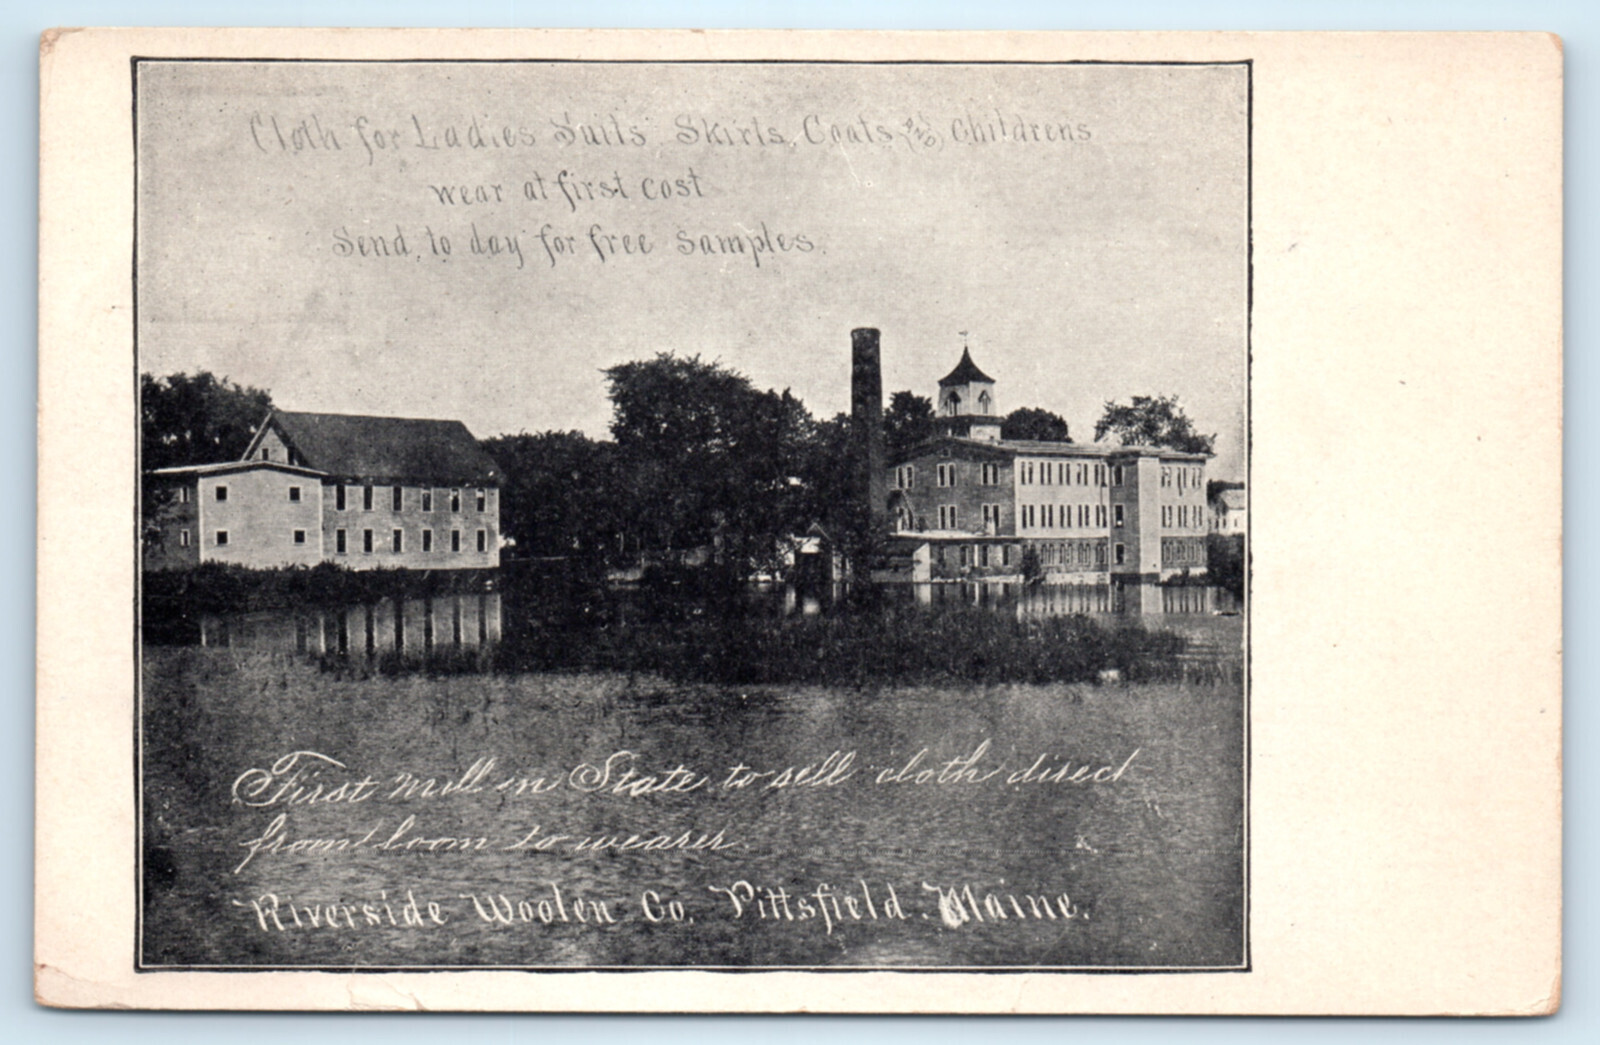 Cloth for Ladies Suits, Skirts, Coats, and Childrens
wear at first cost
Send to day for free Samples.
First mill in State to sell cloth direct
from loom to wearer.
Riverside Woolen Co. Pittsfield, Maine.